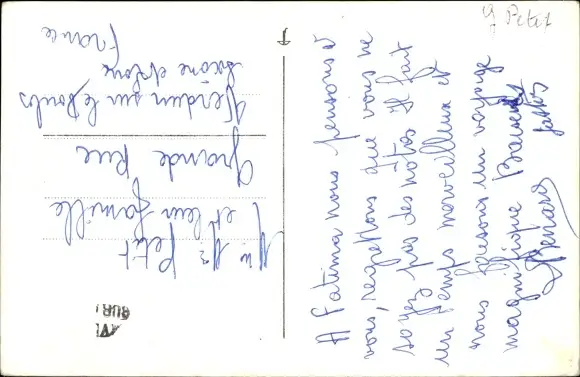 g Petit
A Fatima nous pensons à
vous, regrettons que vous ne
soyez pas des nôtres Il fait
un temps merveilleux et
nous faisons un voyage
magnifique Baisers
à tous
Renard
Mr Me Petit
et leur famille
Grande Rue
Verdun sur le Doubs
Saône et Loire
France